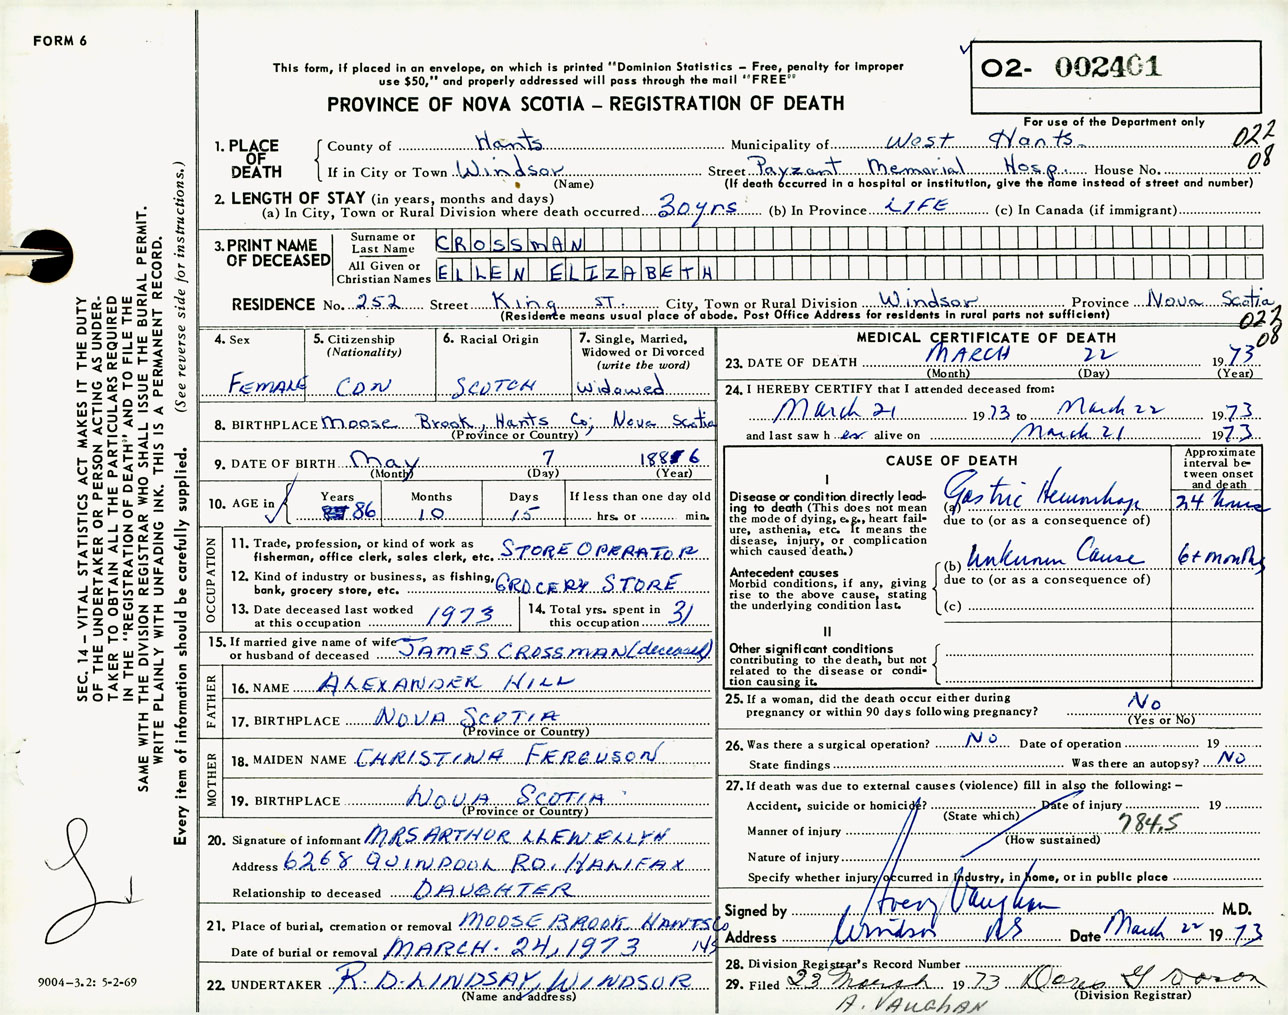 FORM 6
This form, if placed in an envelope, on which is printed "Dominion Statistics – Free, penalty for improper
use $50," and properly addressed will pass through the mail "FREE"
O2- 002461
PROVINCE OF NOVA SCOTIA – REGISTRATION OF DEATH
For use of the Department only
022
08
1. PLACE OF DEATH
County of Hants Municipality of West Hants
If in City or Town Windsor Street Payzant Memorial Hosp. House No.
(Name) (If death occurred in a hospital or institution, give the name instead of street and number)
2. LENGTH OF STAY (in years, months and days)
(a) In City, Town or Rural Division where death occurred 30 yrs (b) In Province LIFE (c) In Canada (if immigrant)
3. PRINT NAME OF DECEASED
Surname or Last Name CROSSMAN
All Given or Christian Names ELLEN ELIZABETH
RESIDENCE No. 252 Street King ST. City, Town or Rural Division Windsor Province Nova Scotia
(Residence means usual place of abode. Post Office Address for residents in rural parts not sufficient)
022
08
4. Sex
FEMALE
5. Citizenship
(Nationality)
CDN
6. Racial Origin
SCOTCH
7. Single, Married,
Widowed or Divorced
(write the word)
Widowed
8. BIRTHPLACE Moose Brook, Hants Co; Nova Scotia
(Province or Country)
9. DATE OF BIRTH May 7 1886
(Month) (Day) (Year)
10. AGE in
Years 86
Months 10
Days 15
If less than one day old
hrs. or min.
OCCUPATION
11. Trade, profession, or kind of work as
fisherman, office clerk, sales clerk, etc. STORE OPERATOR
12. Kind of industry or business, as fishing,
bank, grocery store, etc. GROCERY STORE
13. Date deceased last worked
at this occupation 1973
14. Total yrs. spent in
this occupation 31
15. If married give name of wife
or husband of deceased JAMES CROSSMAN (deceased)
FATHER
16. NAME ALEXANDER HILL
17. BIRTHPLACE NOVA SCOTIA
(Province or Country)
MOTHER
18. MAIDEN NAME CHRISTINA FERGUSON
19. BIRTHPLACE NOVA SCOTIA
(Province or Country)
20. Signature of informant MRS ARTHOR LLEWELLYN
Address 6268 QUINPOOL RD. HALIFAX
Relationship to deceased DAUGHTER
21. Place of burial, cremation or removal MOOSE BROOK HANTS Co
Date of burial or removal MARCH. 24, 1973 145
22. UNDERTAKER R. D. LINDSAY, WINDSOR
(Name and address)
MEDICAL CERTIFICATE OF DEATH
23. DATE OF DEATH MARCH 22 1973
(Month) (Day) (Year)
24. I HEREBY CERTIFY that I attended deceased from:
March 21 1973 to March 22 1973
and last saw h er alive on March 21 1973
CAUSE OF DEATH
Approximate
interval be-
tween onset
and death
I
Disease or condition directly lead-
ing to death (This does not mean
the mode of dying, e.g., heart fail-
ure, asthenia, etc. It means the
disease, injury, or complication
which caused death.)
(a) Gastric Hemorrhage 24 hours
due to (or as a consequence of)
Antecedent causes
Morbid conditions, if any, giving
rise to the above cause, stating
the underlying condition last.
(b) Unknown Cause 6+ months
due to (or as a consequence of)
(c)
II
Other significant conditions
contributing to the death, but not
related to the disease or condi-
tion causing it.
25. If a woman, did the death occur either during
pregnancy or within 90 days following pregnancy? No
(Yes or No)
26. Was there a surgical operation? No Date of operation 19
State findings Was there an autopsy? No
27. If death was due to external causes (violence) fill in also the following: –
Accident, suicide or homicide? Date of injury 19
(State which)
Manner of injury 784.5
(How sustained)
Nature of injury
Specify whether injury occurred in industry, in home, or in public place
Signed by Avery Vaughan M.D.
Address Windsor NS Date March 22 1973
28. Division Registrar's Record Number
29. Filed 23 March 1973
(Division Registrar)
A. VAUGHAN
SEC. 14 – VITAL STATISTICS ACT MAKES IT THE DUTY
OF THE UNDERTAKER OR PERSON ACTING AS UNDER-
TAKER TO OBTAIN ALL THE PARTICULARS REQUIRED
IN THE "REGISTRATION OF DEATH" AND TO FILE THE
SAME WITH THE DIVISION REGISTRAR WHO SHALL ISSUE THE BURIAL PERMIT.
WRITE PLAINLY WITH UNFADING INK. THIS IS A PERMANENT RECORD.
Every item of information should be carefully supplied. (See reverse side for instructions.)
9004–3.2: 5-2-69